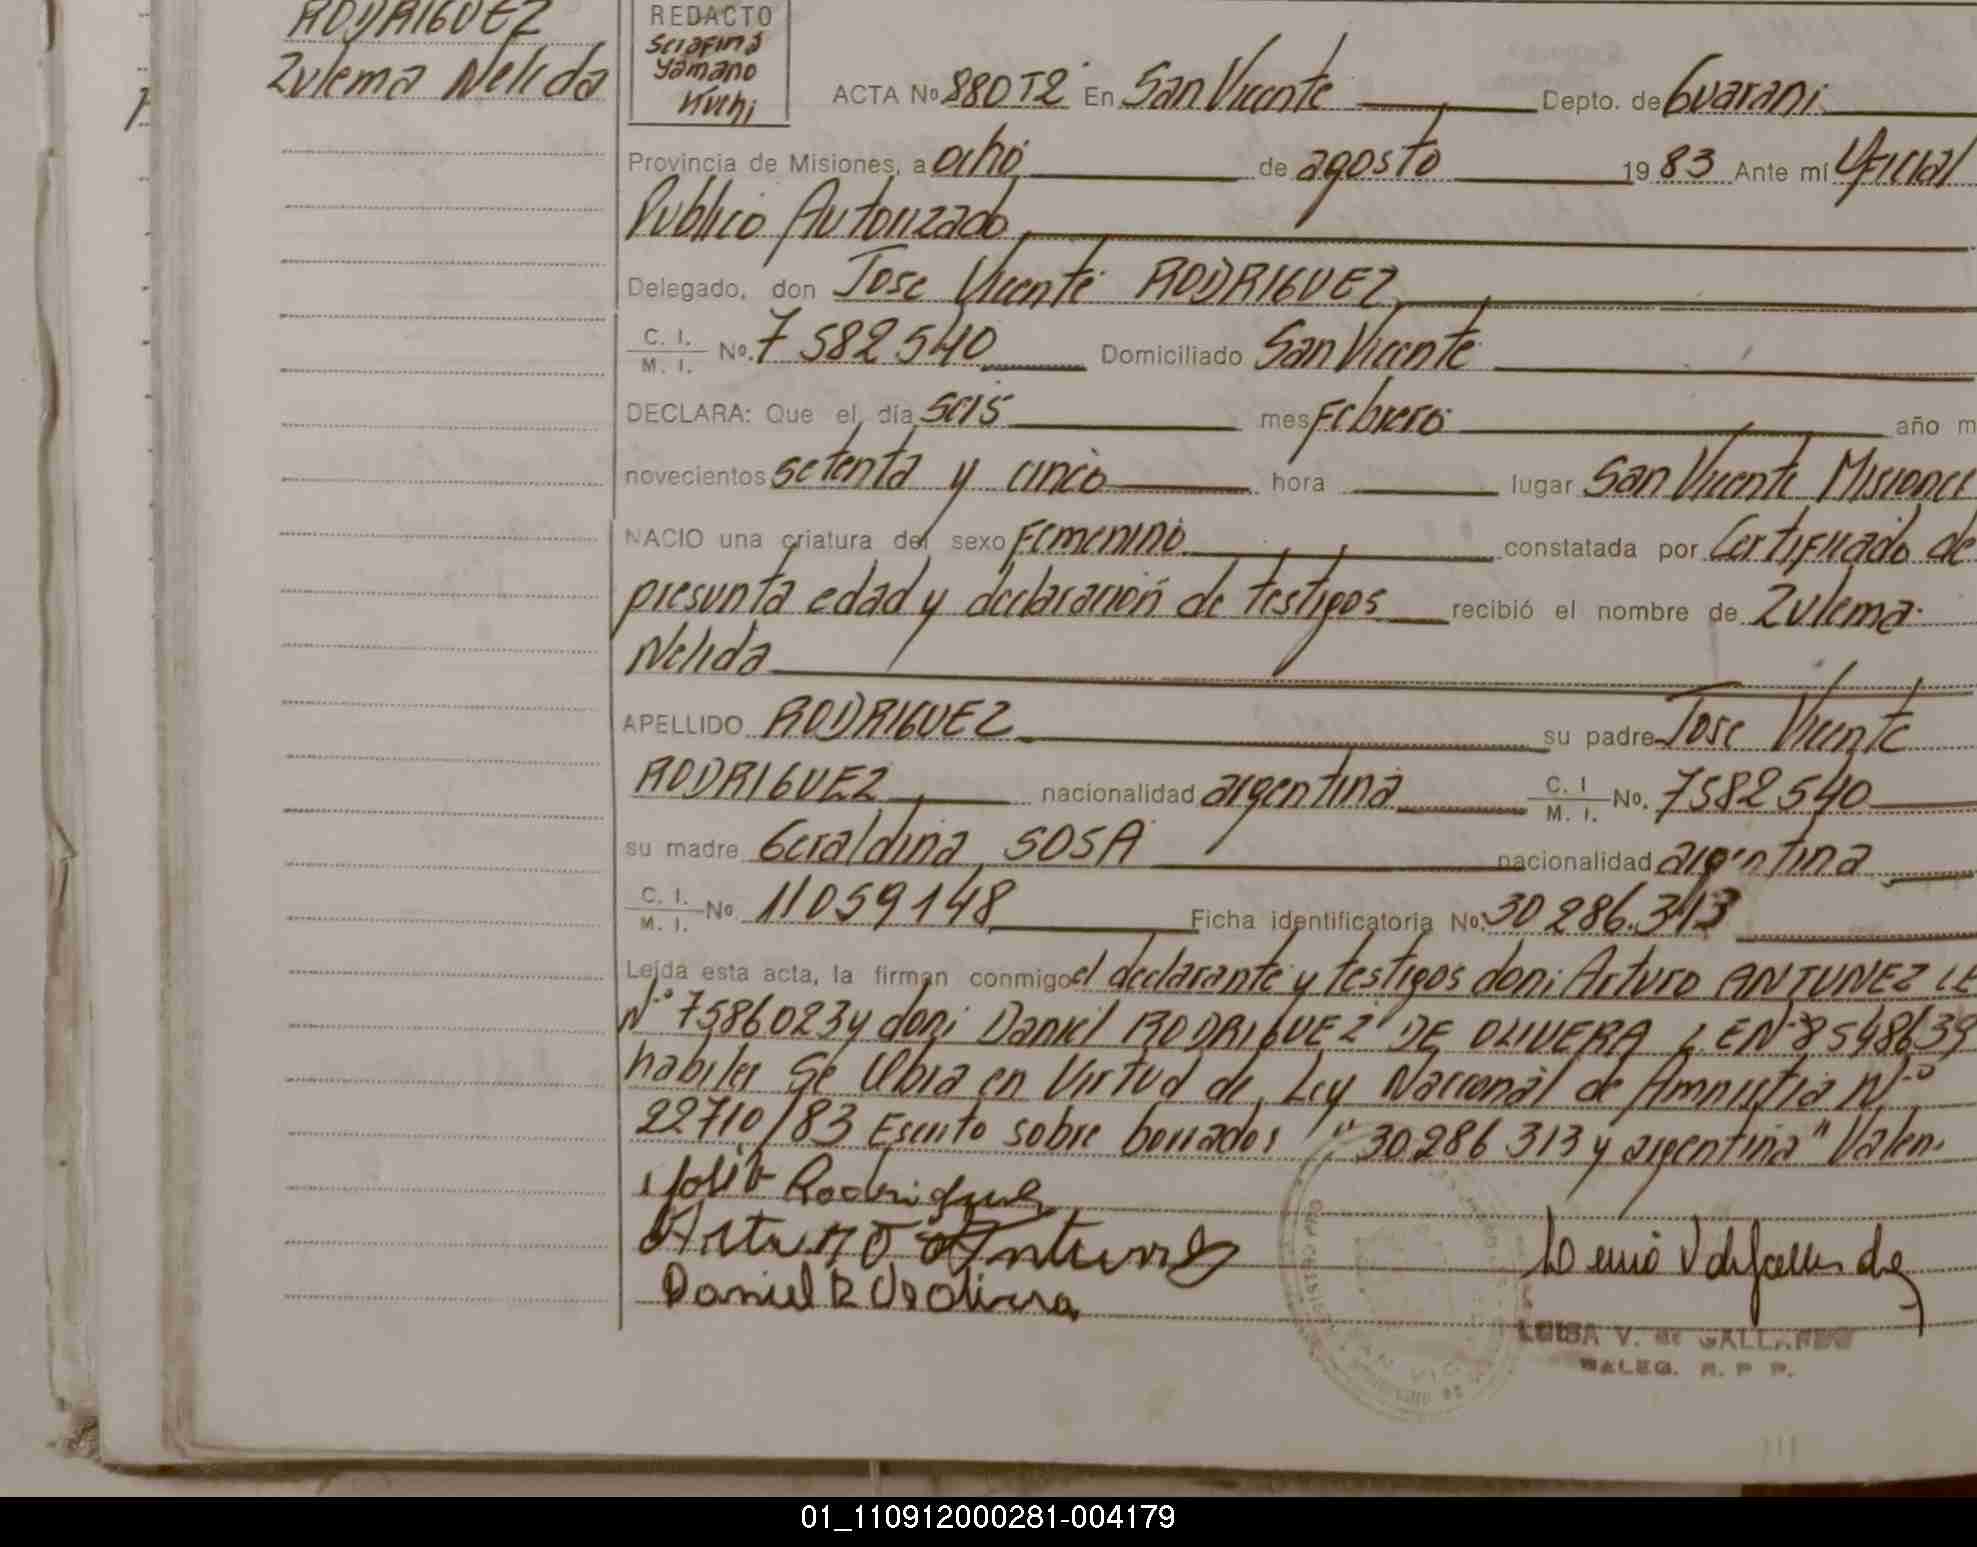 RODRIGUEZ
Zulema Nelida
REDACTO
Serafina
Yamano
Kuchi
ACTA No 880 T2 En San Vicente Depto. de Guarani
Provincia de Misiones, a ocho de agosto 1983 Ante mí Oficial
Publico Autorizado
Delegado, don Jose Vicente RODRIGUEZ
C. I. / M. I. No. 7582540 Domiciliado San Vicente
DECLARA: Que el día seis mes Febrero año m
novecientos setenta y cinco hora lugar San Vicente Misiones
NACIO una criatura del sexo Femenino constatada por Certificado de
presunta edad y declaración de testigos recibió el nombre de Zulema
Nelida
APELLIDO RODRIGUEZ su padre Jose Vicente
RODRIGUEZ nacionalidad argentina C. I / M. I. No. 7582540
su madre Geraldina SOSA nacionalidad argentina
C. I. / M. I. No 11059148 Ficha identificatoria No. 30286.313
Leída esta acta, la firman conmigo el declarante y testigos don: Arturo ANTUNEZ LE
N° 7586023 y don: Daniel RODRIGUEZ DE OLIVERA L EN° 8548639
habiles Se labra en Virtud de Ley Nacional de Amnistia N°
22710/83 Escrito sobre borrados "30286313 y argentina" Valen.
José V Rodriguez
Arturo Antunes
Daniel R de Olivera
LUISA V. de GALLARDO
DALEG. R. P P.
01_110912000281-004179